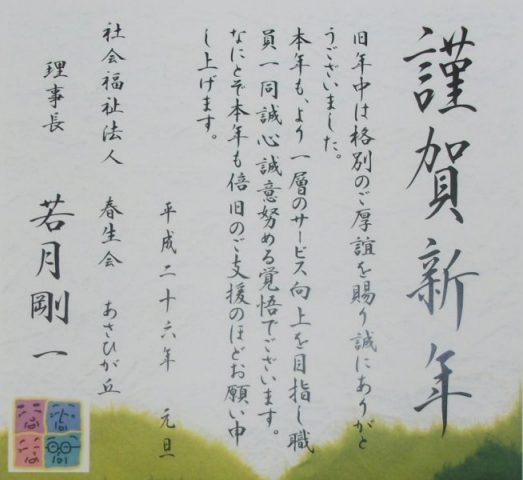 謹賀新年
旧年中は格別のご厚誼を賜り誠にありがと
うございました。
本年も、より一層のサービス向上を目指し職
員一同誠心誠意努める覚悟でございます。
なにとぞ本年も倍旧のご支援のほどお願い申
し上げます。
平成二十六年 元旦
社会福祉法人 春生会 あさひが丘
理事長 若月剛一